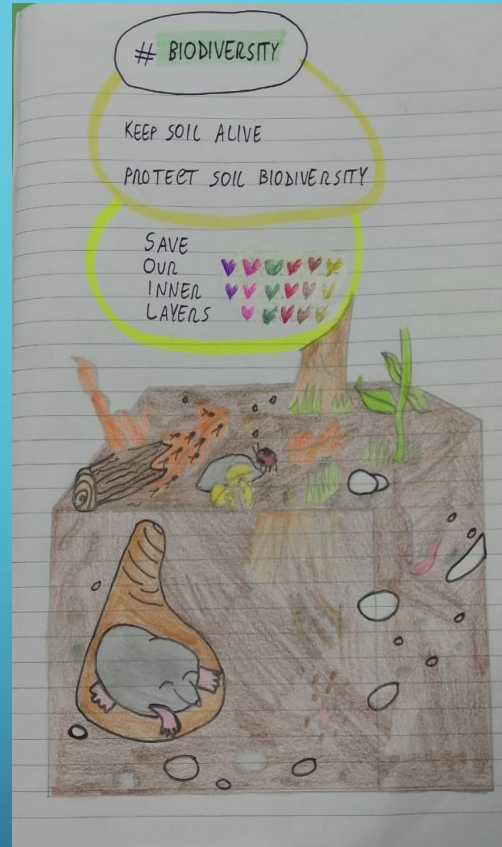 # BIODIVERSITY
KEEP SOIL ALIVE
PROTECT SOIL BIODIVERSITY
SAVE
OUR
INNER
LAYERS